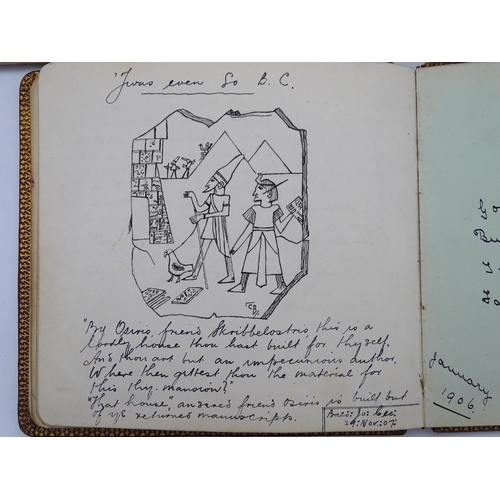 'Twas even So B.C.
"By Osiris friend Skribbelostris this is a
lordly house thou hast built for thyself.
And thou art but an impecunious author.
Where then gittest thou the material for
this thy mansion?"
"That house", friend Osiris is built but
of ye returned manuscripts.
29: Nov: 07:
January
1906.